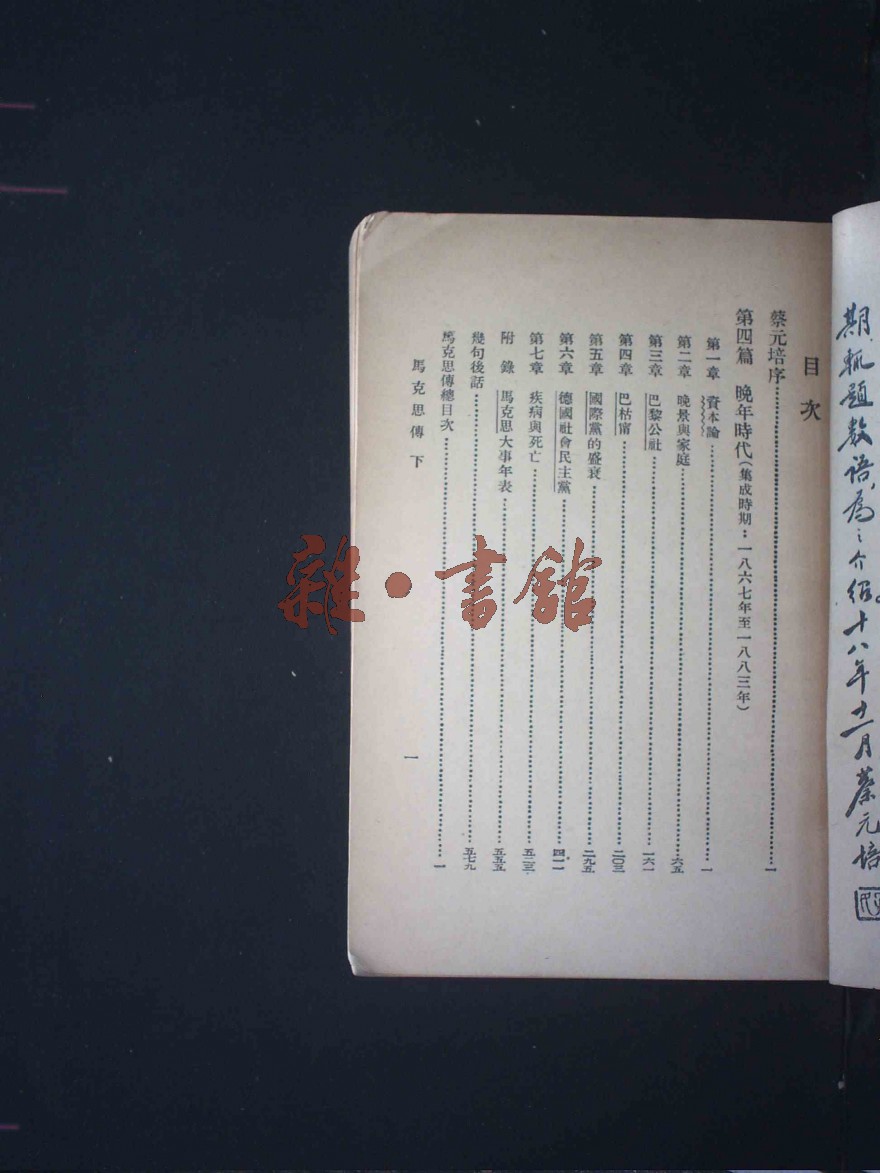 期輒題數語爲之介紹。十八年十一月蔡元培
目次
蔡元培序……一
第四篇 晚年時代(集成時期：一八六七年至一八八三年)
第一章 資本論……一
第二章 晚景與家庭……六五
第三章 巴黎公社……一六一
第四章 巴枯甯……二〇三
第五章 國際黨的盛衰……二九五
第六章 德國社會民主黨……四一一
第七章 疾病與死亡……五二三
附錄 馬克思大事年表……五五五
幾句後話……五七九
馬克思傳總目次……一
馬克思傳 下
一
雜·書館